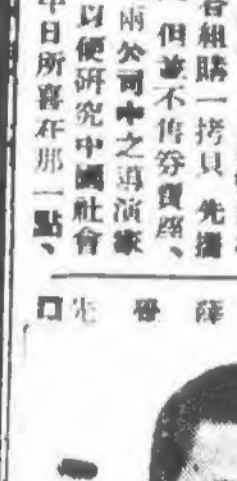 各組購一拷貝、先攝
但並不售券賣座、
兩公司中之導演家
以便研究中國社會
年日所喜在那一點、
薛 先